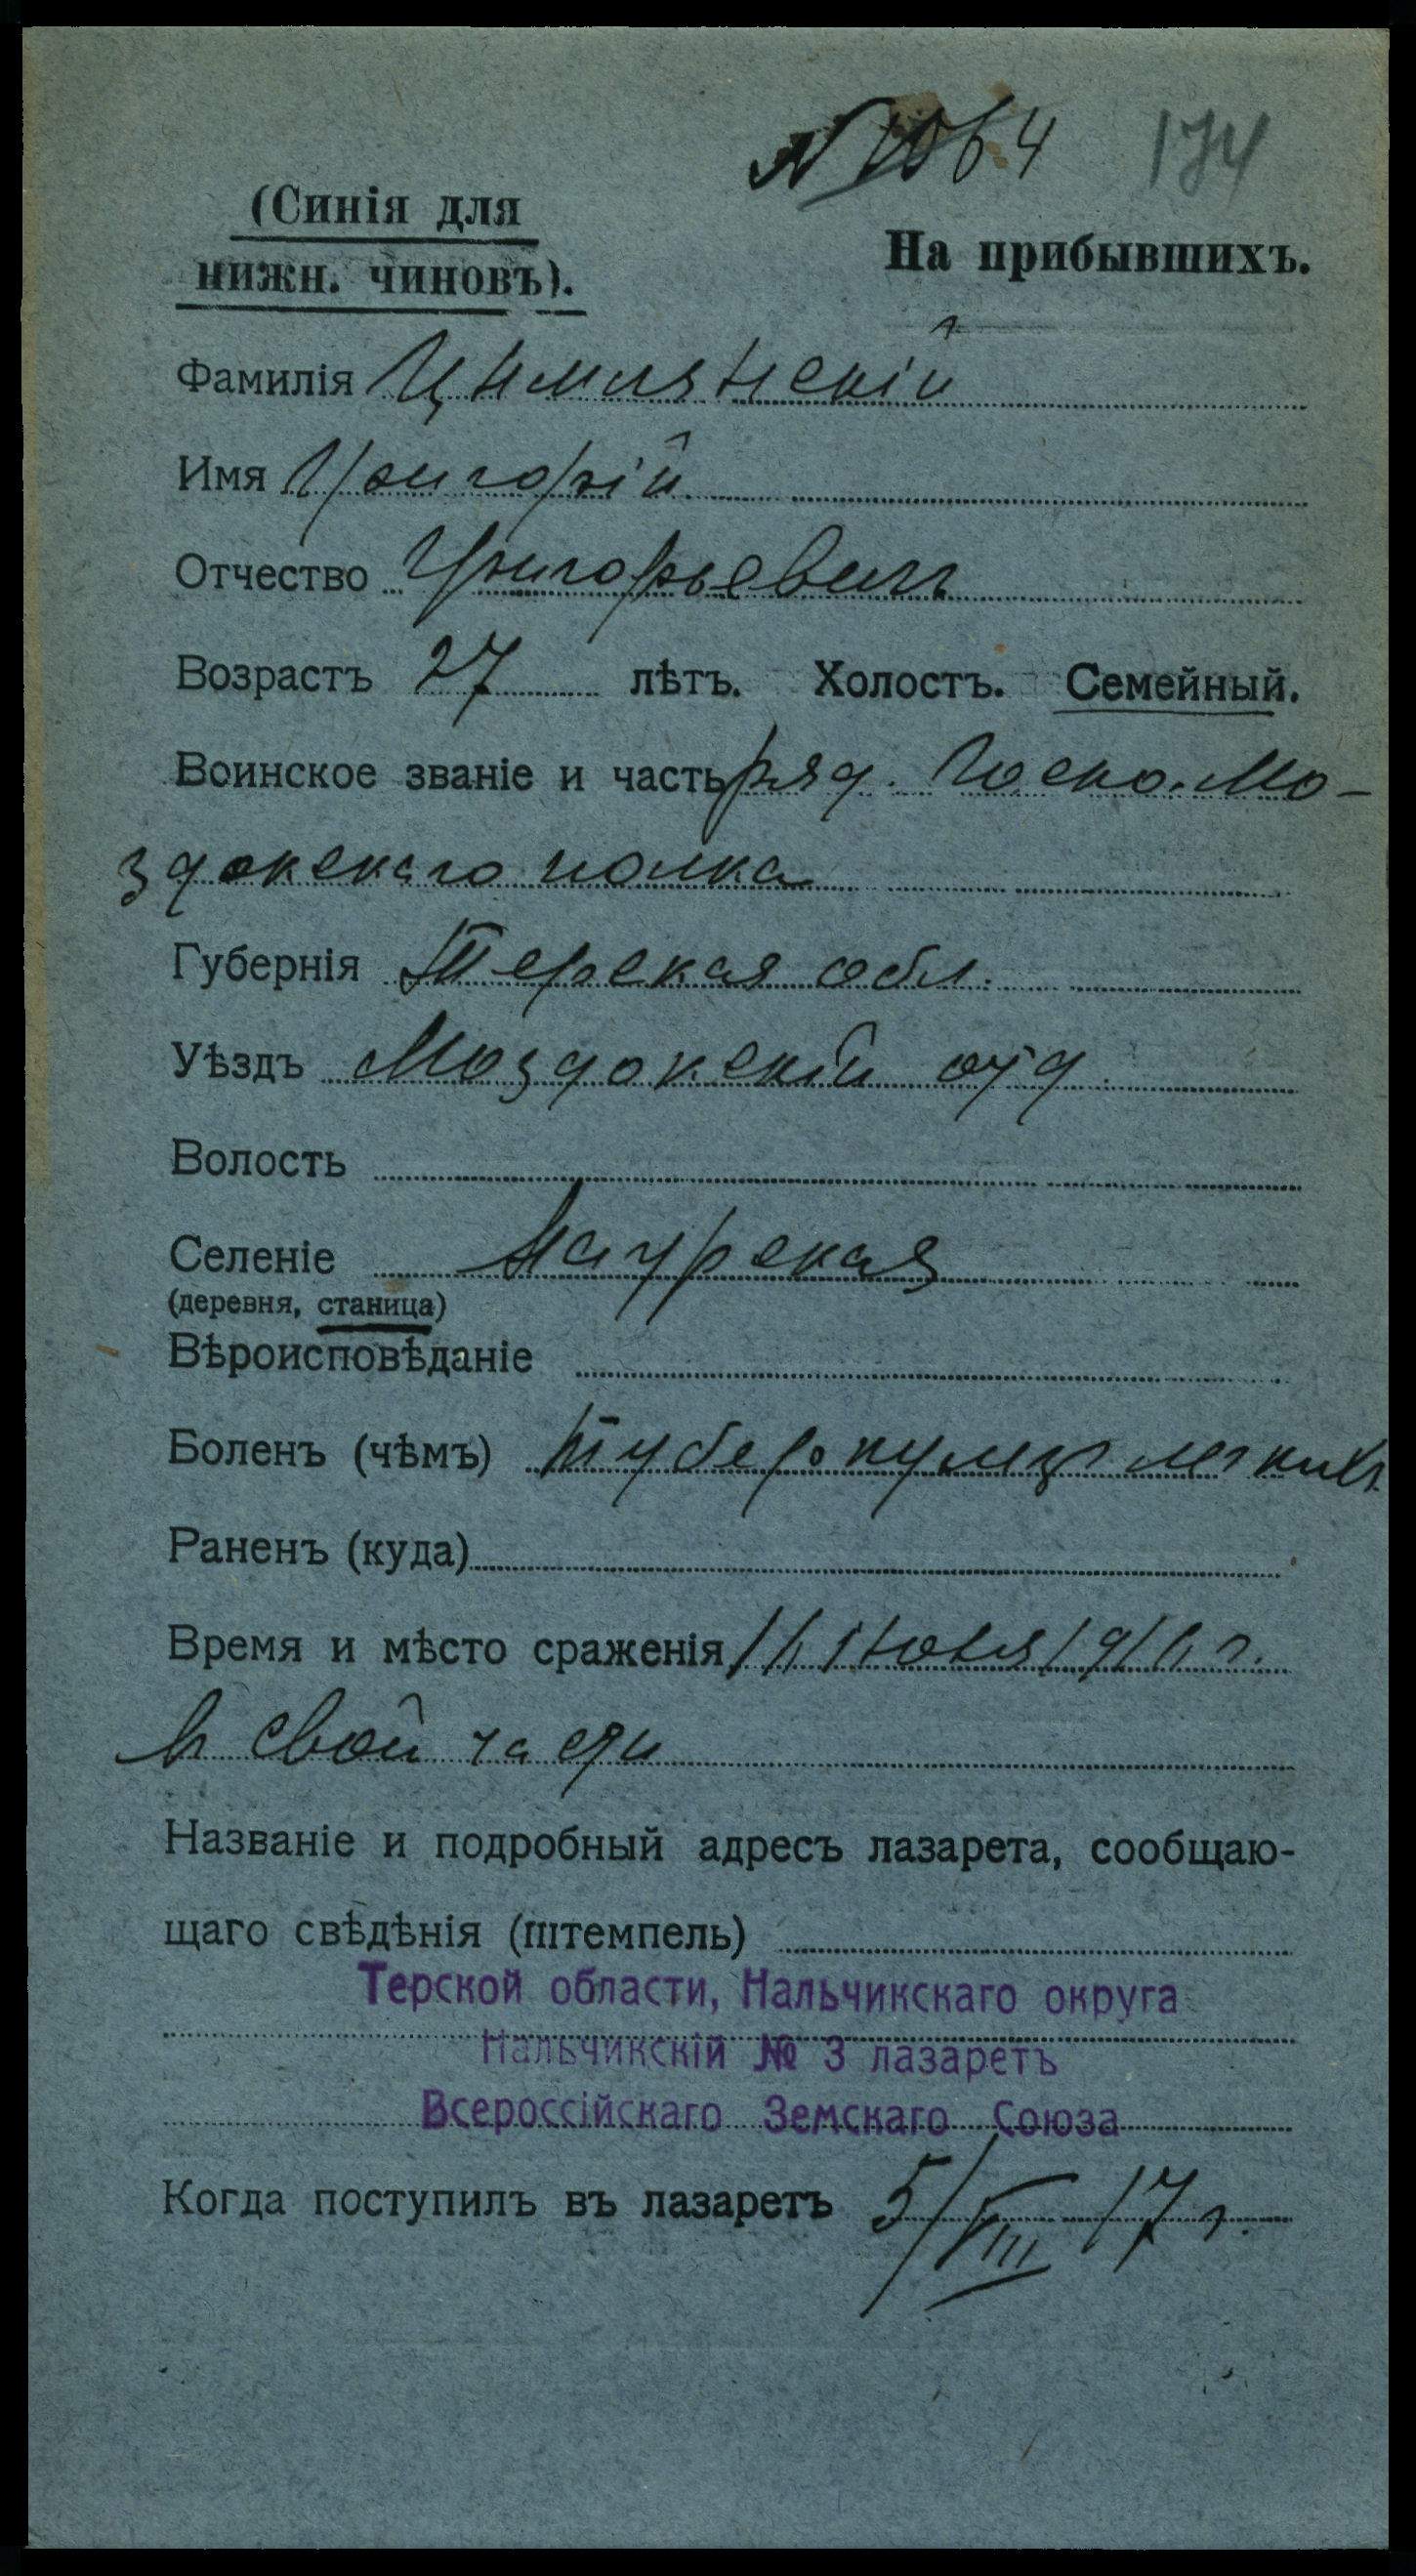 № 1064 174
(Синія для
нижн. чиновъ).
На прибывшихъ.
Фамилія Цимлянскій
Имя Григорій
Отчество Григорьевичъ
Возрастъ 27 лѣтъ. Холостъ. Семейный.
Воинское званіе и часть ряд. Мо-
здокскаго полка
Губернія Терская обл.
Уѣздъ Моздокскій отд.
Волость
Селеніе Наурская
(деревня, станица)
Вѣроисповѣданіе
Боленъ (чѣмъ) туберкулезъ легкихъ
Раненъ (куда)
Время и мѣсто сраженія 1916 г.
въ свой части
Названіе и подробный адресъ лазарета, сообщаю-
щаго свѣдѣнія (штемпель)
Терской области, Нальчикскаго округа
Нальчикскій № 3 лазаретъ
Всероссійскаго Земскаго Союза
Когда поступилъ въ лазаретъ 5/VIII 17 г.